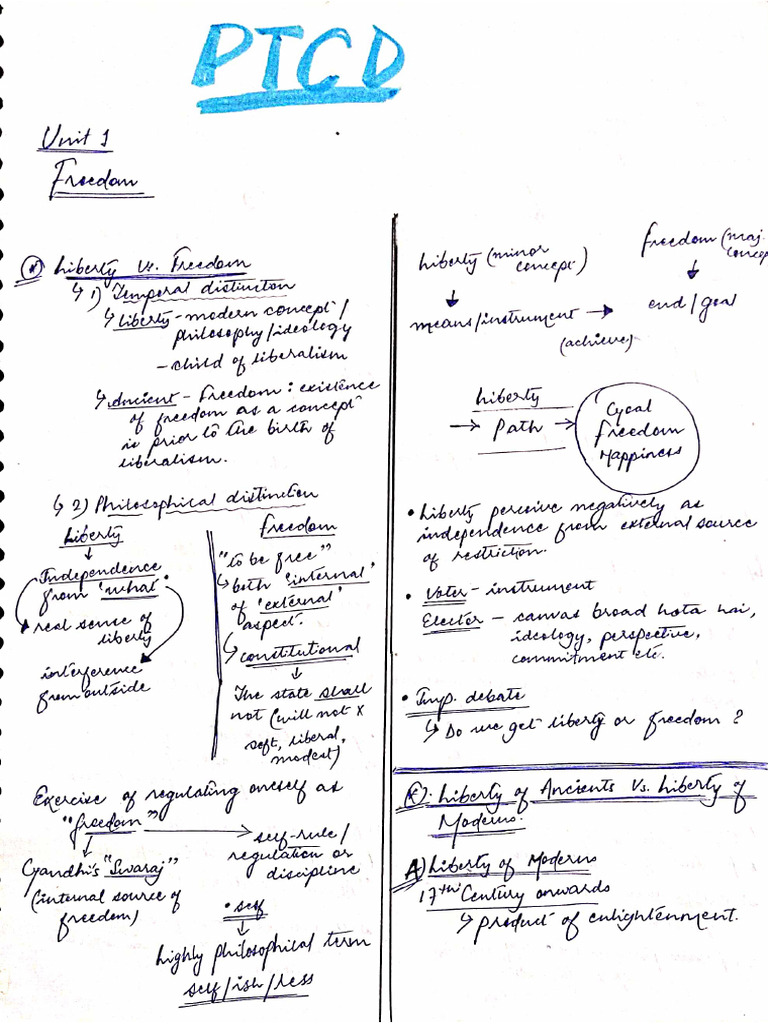 PTCD
Unit 1
Freedom
Liberty vs. Freedom
↳ 1) Temporal distinction
↳ Liberty - modern concept/
philosophy/ideology
- child of liberalism
↳ Ancient - Freedom: existence
of freedom as a concept
is prior to the birth of
liberalism.
↳ 2) Philosophical distinction
Liberty
↓
Independence
from "what"
real sense of
liberty
interference
from outside
freedom
"to be free"
↳ both 'internal'
of 'external'
aspect.
↳ constitutional
↓
The state shall
not (will not x
soft, liberal,
modest)
Exercise of regulating oneself as
"freedom"
→ self-rule/
regulation or
discipline
Gandhi's "Swaraj"
(internal source of
freedom)
• self
↓
highly philosophical term
self/ish/less
liberty (minor
concept)
↓
means/instrument →
(achieve)
freedom (maj.
concep
↓
end/goal
liberty
→ Path →
freedom
Happiness
• liberty perceive negatively as
independence from external source
of restriction.
• Voter - instrument
Elector - canvas broad hota hai,
ideology, perspective,
commitment etc.
• Imp. debate
↳ Do we get liberty or freedom ?
Liberty of Ancients Vs. Liberty of
Moderns.
A) Liberty of Moderns
17th Century onwards
↳ product of enlightenment.